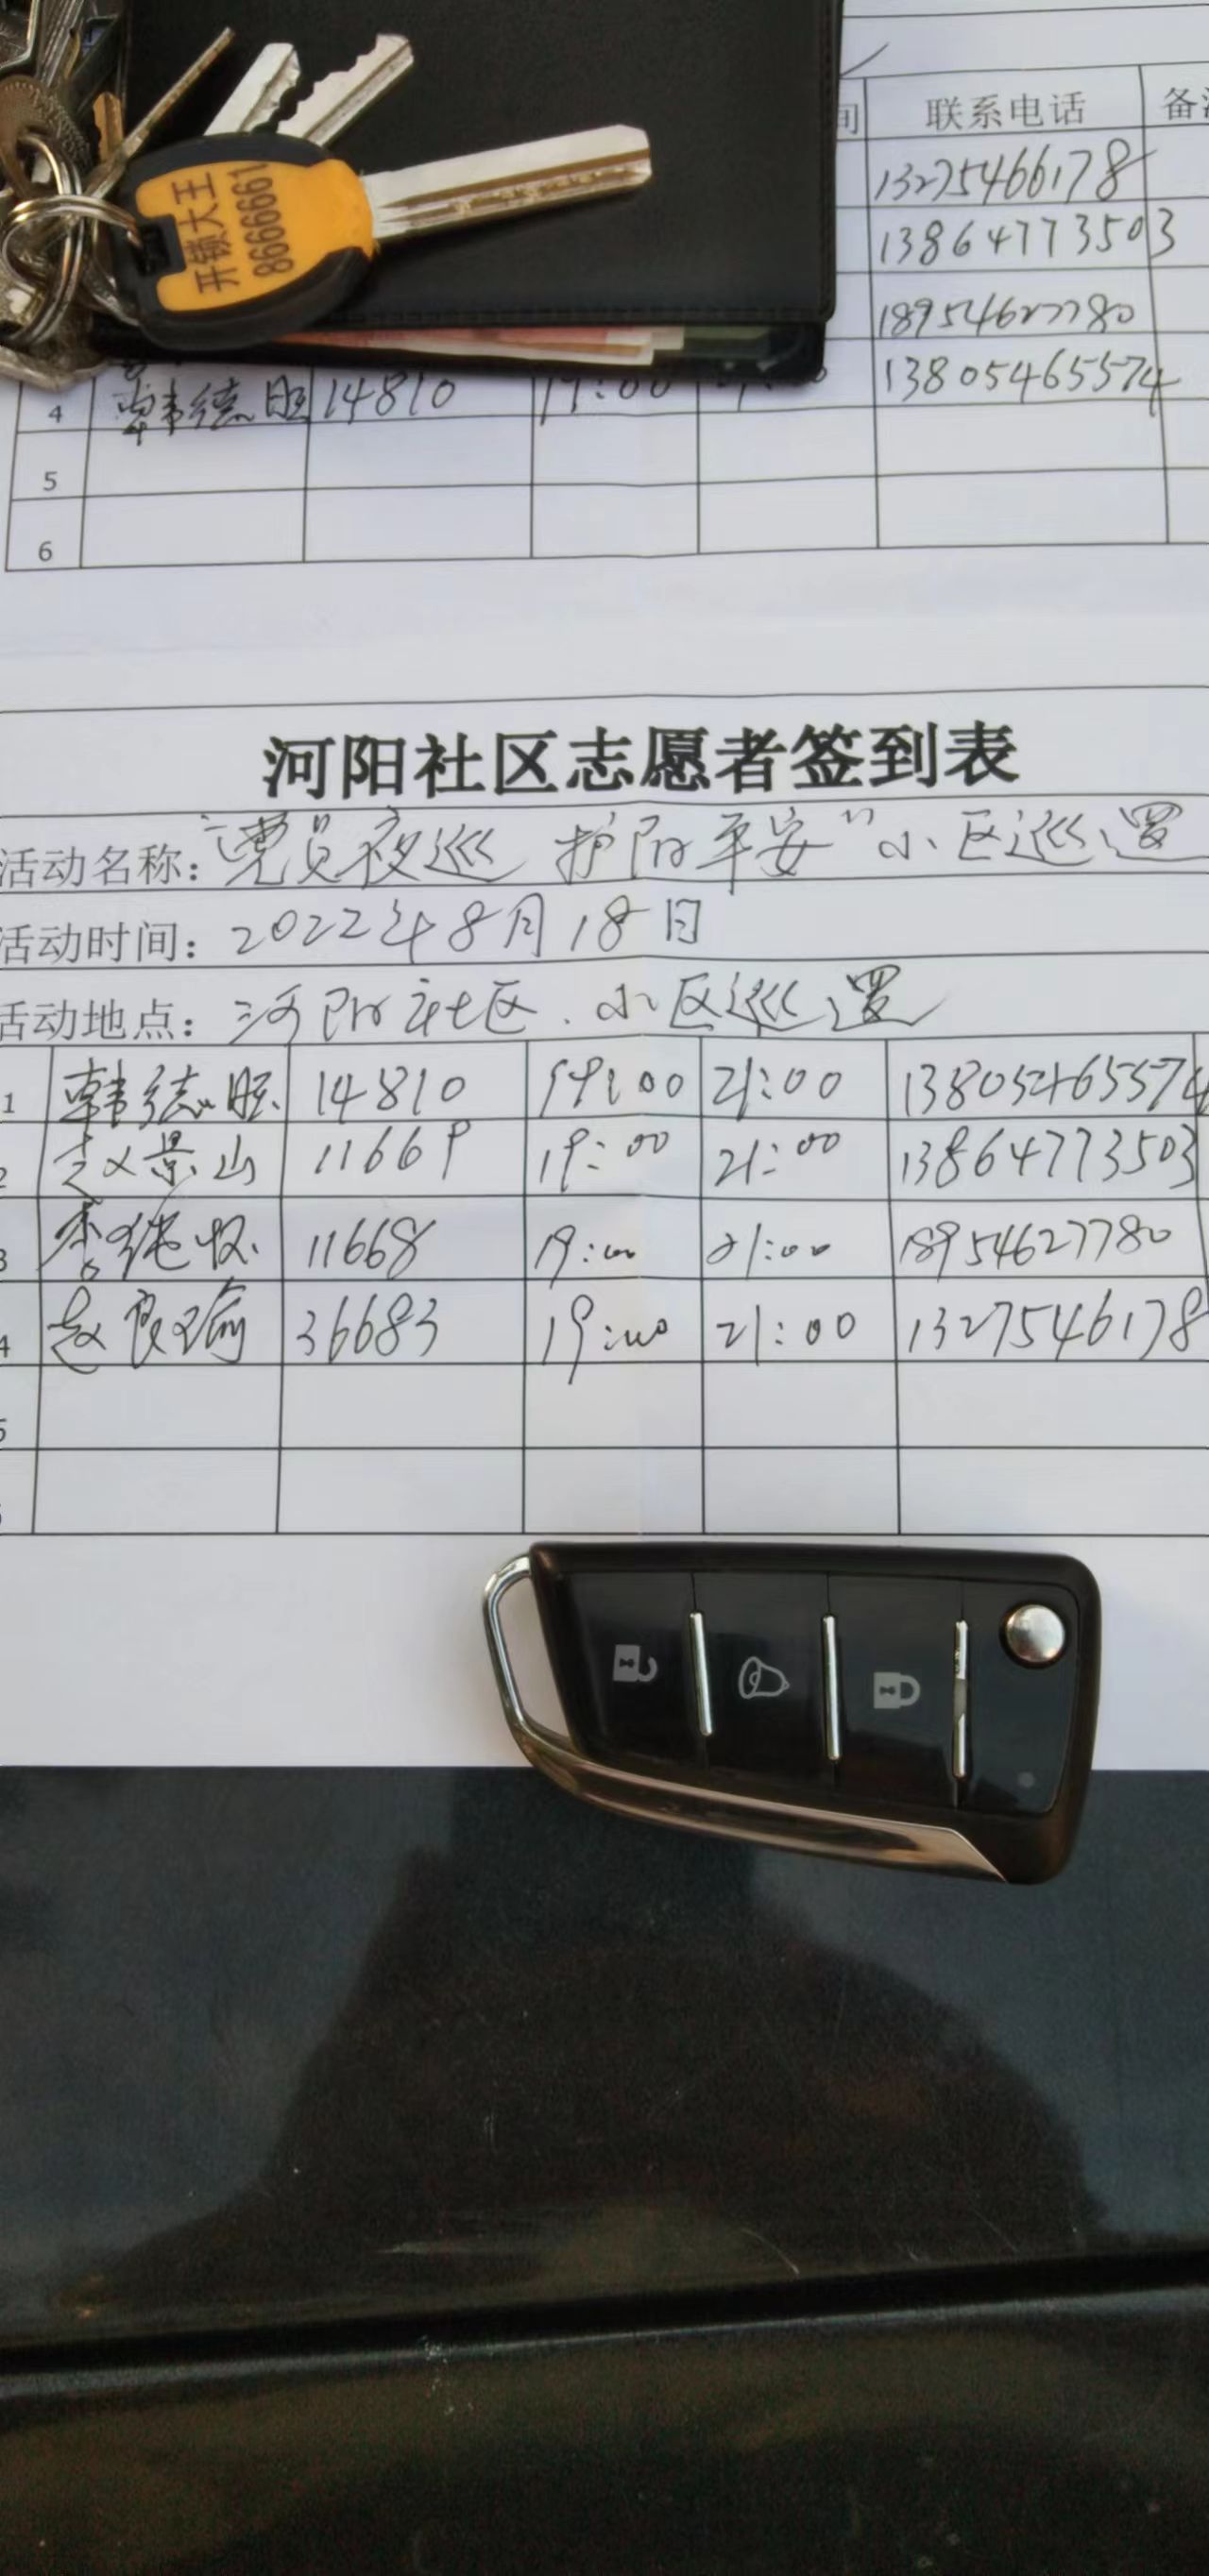 开锁大王
8666661
间 联系电话 备
13275466178
13864773503
18954627780
4 韩德胜 14810 19:00 13805465574
5
6
河阳社区志愿者签到表
活动名称：“党员夜巡 护阳平安”小区巡逻
活动时间：2022年8月18日
活动地点：河阳社区．小区巡逻
1 韩德胜 14810 19:00 21:00 13805465574
2 赵景山 11669 19:00 21:00 13864773503
3 李纯收 11668 19:00 21:00 18954627780
4 赵良瑜 36683 19:00 21:00 1327546178
5